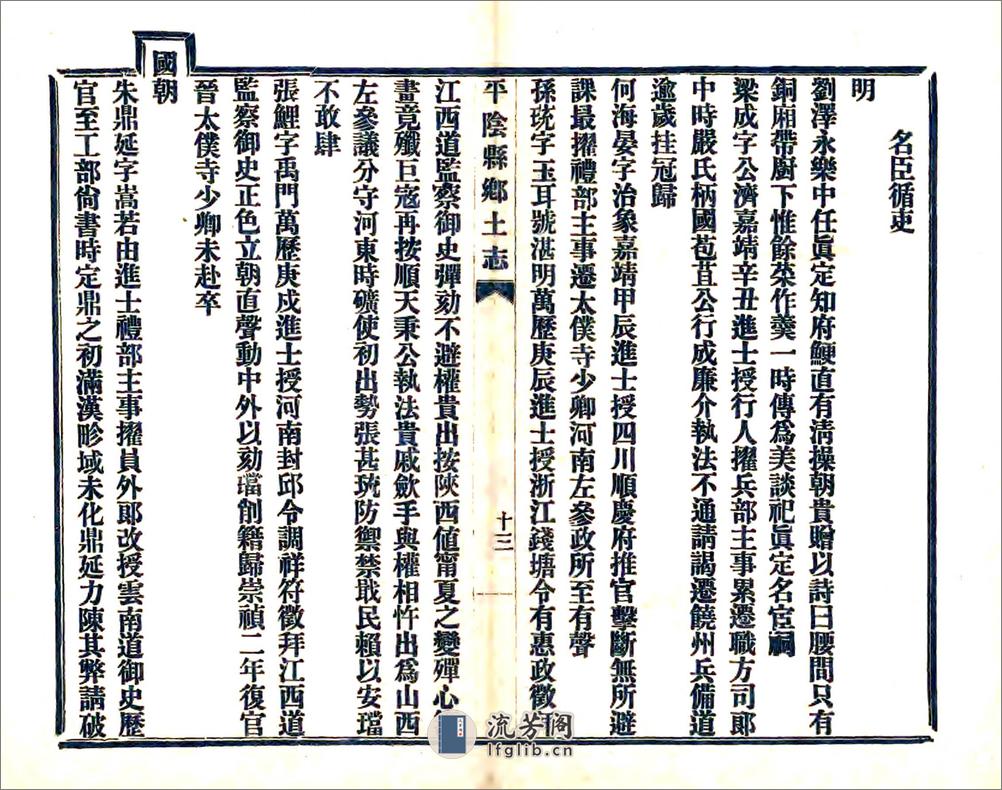 名臣循吏
明
劉澤永樂中任眞定知府鯁直有淸操朝貴贈以詩曰腰間只有
銅廂帶廚下惟餘菜作羹一時傳爲美談祀眞定名宦祠
梁成字公濟嘉靖辛丑進士授行人擢兵部主事累遷職方司郞
中時嚴氏柄國苞苴公行成廉介執法不通請謁遷饒州兵備道
逾歲挂冠歸
何海晏字治象嘉靖甲辰進士授四川順慶府推官擊斷無所避
課最擢禮部主事遷太僕寺少卿河南左參政所至有聲
孫珫字玉耳號湛明萬歷庚辰進士授浙江錢塘令有惠政徵拜
平陰縣鄉土志
十三
江西道監察御史彈劾不避權貴出按陝西値甯夏之變殫心
畫竟殲巨寇再按順天秉公執法貴戚歛手與權相忤出爲山西
左參議分守河東時礦使初出勢張甚珫防禦禁戢民賴以安璫
不敢肆
張鯉字禹門萬歷庚戌進士授河南封邱令調祥符徵拜江西道
監察御史正色立朝直聲動中外以劾璫削籍歸崇禎二年復官
晉太僕寺少卿未赴卒
國朝
朱鼎延字嵩若由進士禮部主事擢員外郞改授雲南道御史歷
官至工部尙書時定鼎之初滿漢畛域未化鼎延力陳其弊請破
流芳阁
lfglib.cn